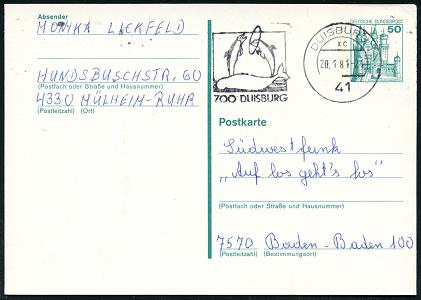 Absender
MONIKA LICKFELD
HUNDSBUSCHSTR. 60
(Postfach oder Straße und Hausnummer)
4330 MÜLHEIM-RUHR
(Postleitzahl) (Ort)
ZOO DUISBURG
DUISBURG
xc
20.1.81
41
DEUTSCHE BUNDESPOST
50
Postkarte
Südwestfunk
„Auf los geht's los"
(Postfach oder Straße und Hausnummer)
7570 Baden-Baden 100
(Postleitzahl) (Bestimmungsort)